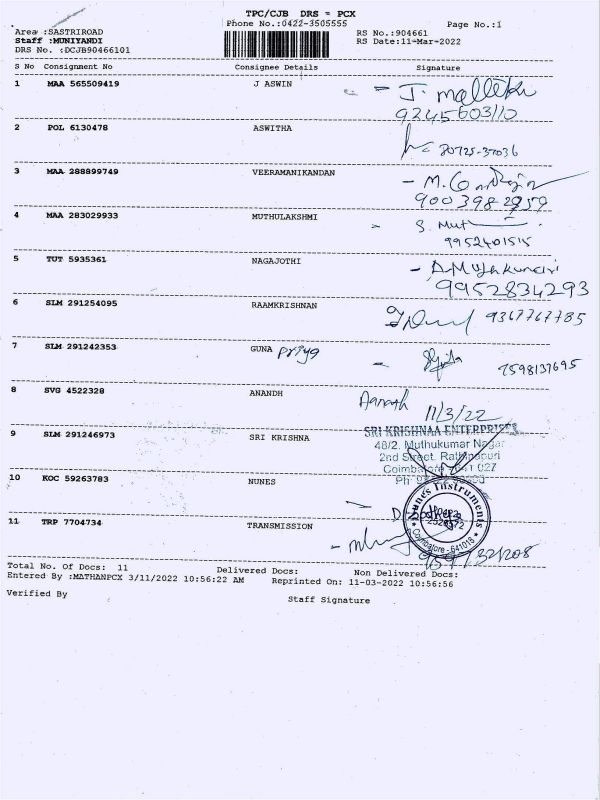 TPC/CJB DRS = PCX
Phone No.:0422-3505555 Page No.:1
Area :SASTRIROAD RS No.:904661
Staff :MUNIYANDI RS Date:11-Mar-2022
DRS No. :DCJB90466101
S No Consignment No Consignee Details Signature
1 MAA 565509419 J ASWIN
9245603110
2 POL 6130478 ASWITHA
3 MAA 288899749 VEERAMANIKANDAN
9003982959
4 MAA 283029933 MUTHULAKSHMI
9952401515
5 TUT 5935361 NAGAJOTHI
9952834293
6 SLM 291254095 RAAMKRISHNAN 9367767785
7 SLM 291242353 GUNA priya
7598137695
8 SVG 4522328 ANANDH
11/3/22
9 SLM 291246973 SRI KRISHNA
SRI KRISHNAA ENTERPRISES
48/2, Muthukumar Nagar
2nd Street, Rathinapuri
Coimbatore 641 027
10 KOC 59263783 NUNES
Nunes Instruments
Coimbatore - 641018
11 TRP 7704734 TRANSMISSION
Total No. Of Docs: 11 Delivered Docs: Non Delivered Docs:
Entered By :MATHANPCX 3/11/2022 10:56:22 AM Reprinted On: 11-03-2022 10:56:56
Verified By Staff Signature